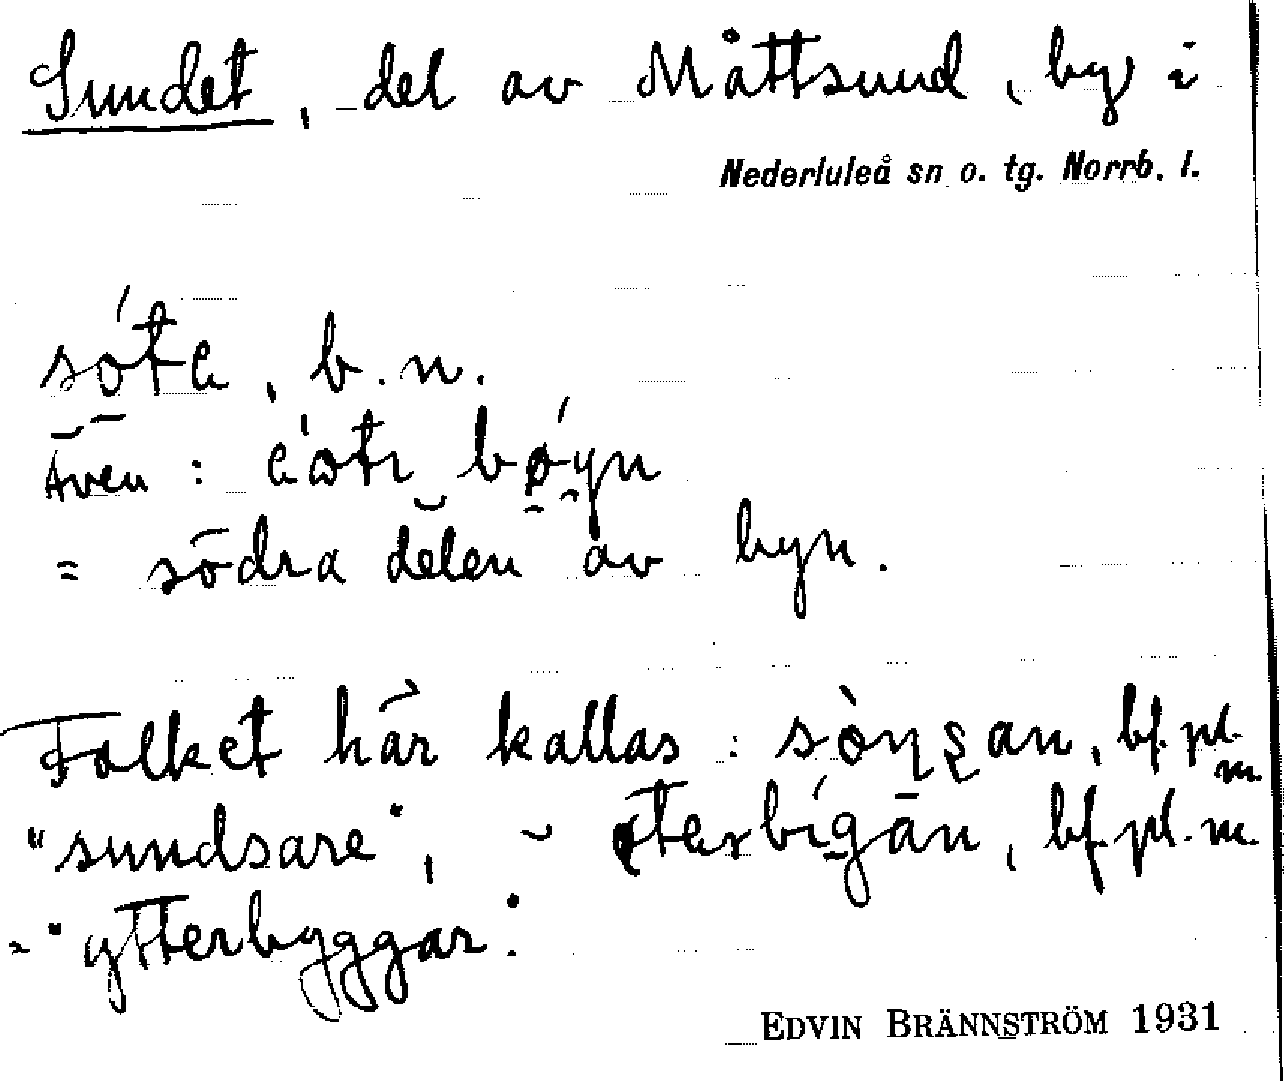 Sundet, del av Måttsund, by i
Nederluleå sn o. tg. Norrb. l.
b.n.
Även:
= södra delen av byn.
Folket här kallas: bf. pl. m.
"sundsare", bf. pl. m.
= "ytterbyggar".
EDVIN BRÄNNSTRÖM 1931